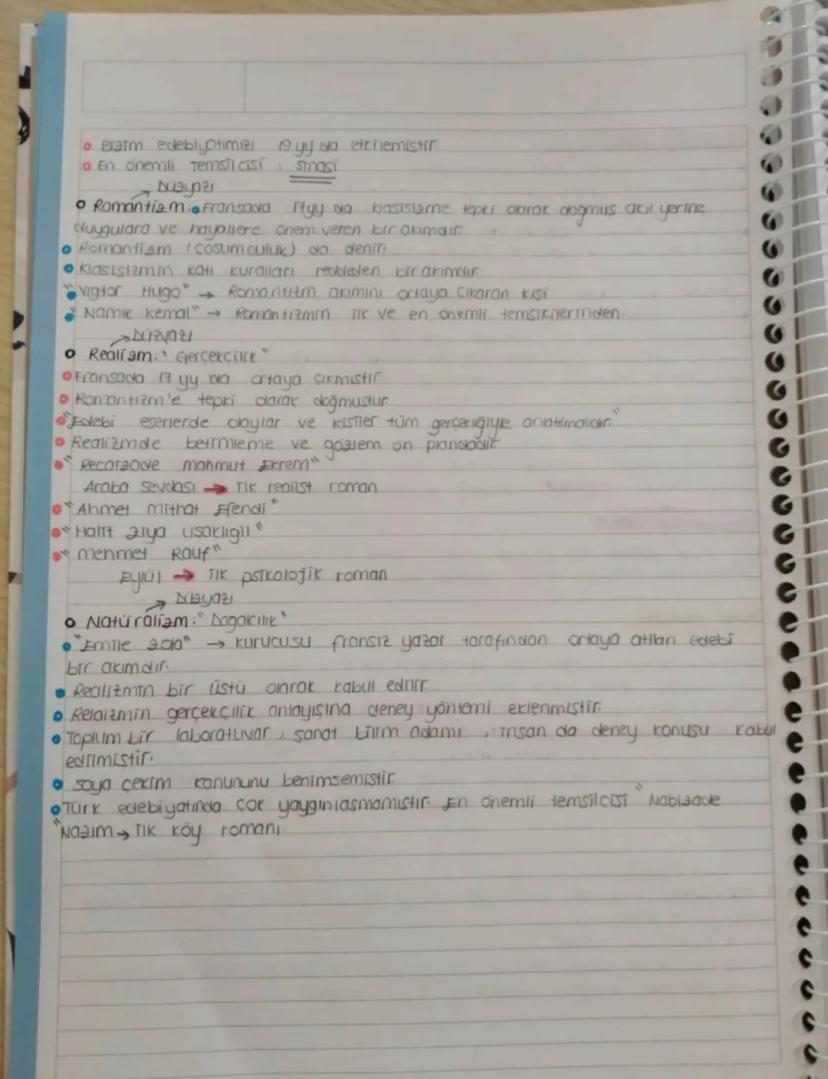 • Bizim edebiyatımızı 19 yy da etkilemiştir.
• En önemli temsilcisi : Şinasi
→ Düzyazı
• Romantizm: • Fransada 17yy da klasisizme tepki olarak doğmuş akıl yerine
duygulara ve hayallere önem veren bir akımdır.
• Romantizm (coşumculuk) da denir.
• Klasisizmin katı kuralları reddeden bir akımdır.
• "Victor Hugo" → Romantizm akımını ortaya çıkaran kişi
• "Namık Kemal" → Romantizmin ilk ve en önemli temsilcilerinden
→ Düzyazı
• Realizm: "Gerçekçilik"
• Fransada 17 yy da ortaya çıkmıştır
• Romantizm'e tepki olarak doğmuştur
• "Edebi eserlerde olaylar ve kişiler tüm gerçekliğiyle anlatılmalıdır."
• Realizmde betimleme ve gözlem ön plandadır
• "Recaizade Mahmut Ekrem"
Araba Sevdası → İlk realist roman
• "Ahmet Mithat Efendi"
• "Halit Ziya Uşaklıgil"
• "Mehmet Rauf"
Eylül → İlk psikolojik roman
→ Düzyazı
• Natüralizm: "Doğalcılık"
• "Emile Zola" → kurucusu fransız yazar tarafından ortaya atılan edebi
bir akımdır.
• Realizmin bir üstü olarak kabul edilir.
• Relaizmin gerçekçilik anlayışına deney yöntemi eklenmiştir.
• Toplum bir laboratuvar, sanat bilim adamı, insan da deney konusu kabul
edilmiştir.
• Soya çekim kanununu benimsemiştir
• Türk edebiyatında çok yaygınlaşmamıştır. En önemli temsilcisi "Nabizade
"Nazım → İlk köy romanı